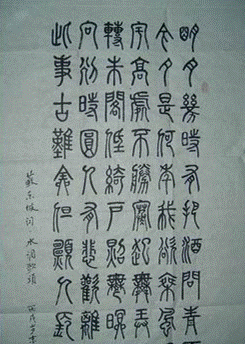 明月幾時有把酒問青
今夕是何年我欲乘風
宇高處不勝寒起舞弄
轉朱閣低綺戶照無眠
向別時圓人有悲歡離
此事古難全但願人長
蘇東坡詞 水調歌頭